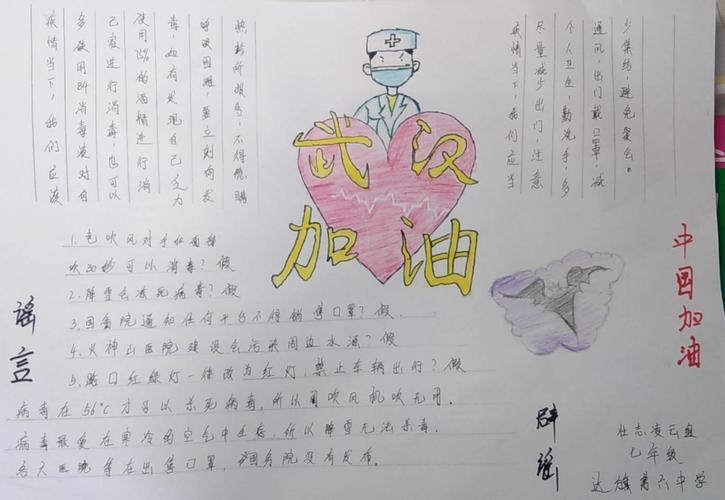 疫情当下，我们应该
多使用84消毒液对自
己家进行消毒，也可以
使用75%的酒精进行消
毒，如有发现自己乏力
呼吸困难，要立刻向发
热诊所报告，不得隐瞒
武汉
加油
疫情当下，我们应当
尽量减少出门，注意
个人卫生，勤洗手，多
通风，出门戴口罩，减
少集结，避免聚会。
中国加油
谣言
1.电吹风对手和面部
吹30秒可以消毒？假
2.降雪会冻死病毒？假
3.国务院通知任何平台不得销售口罩？假.
4.火神山医院建设会污染周边水源？假
5.路口红绿灯一律改为红灯，禁止车辆出行？假
病毒在56°C才可以杀死病毒，所以用吹风机吹无用。
病毒最爱在寒冷的空气中生存，所以降雪无法杀毒。
各大医院等在出售口罩，国务院没有发布。
辟谣
壮志凌云组
七年级
达旗第六中学